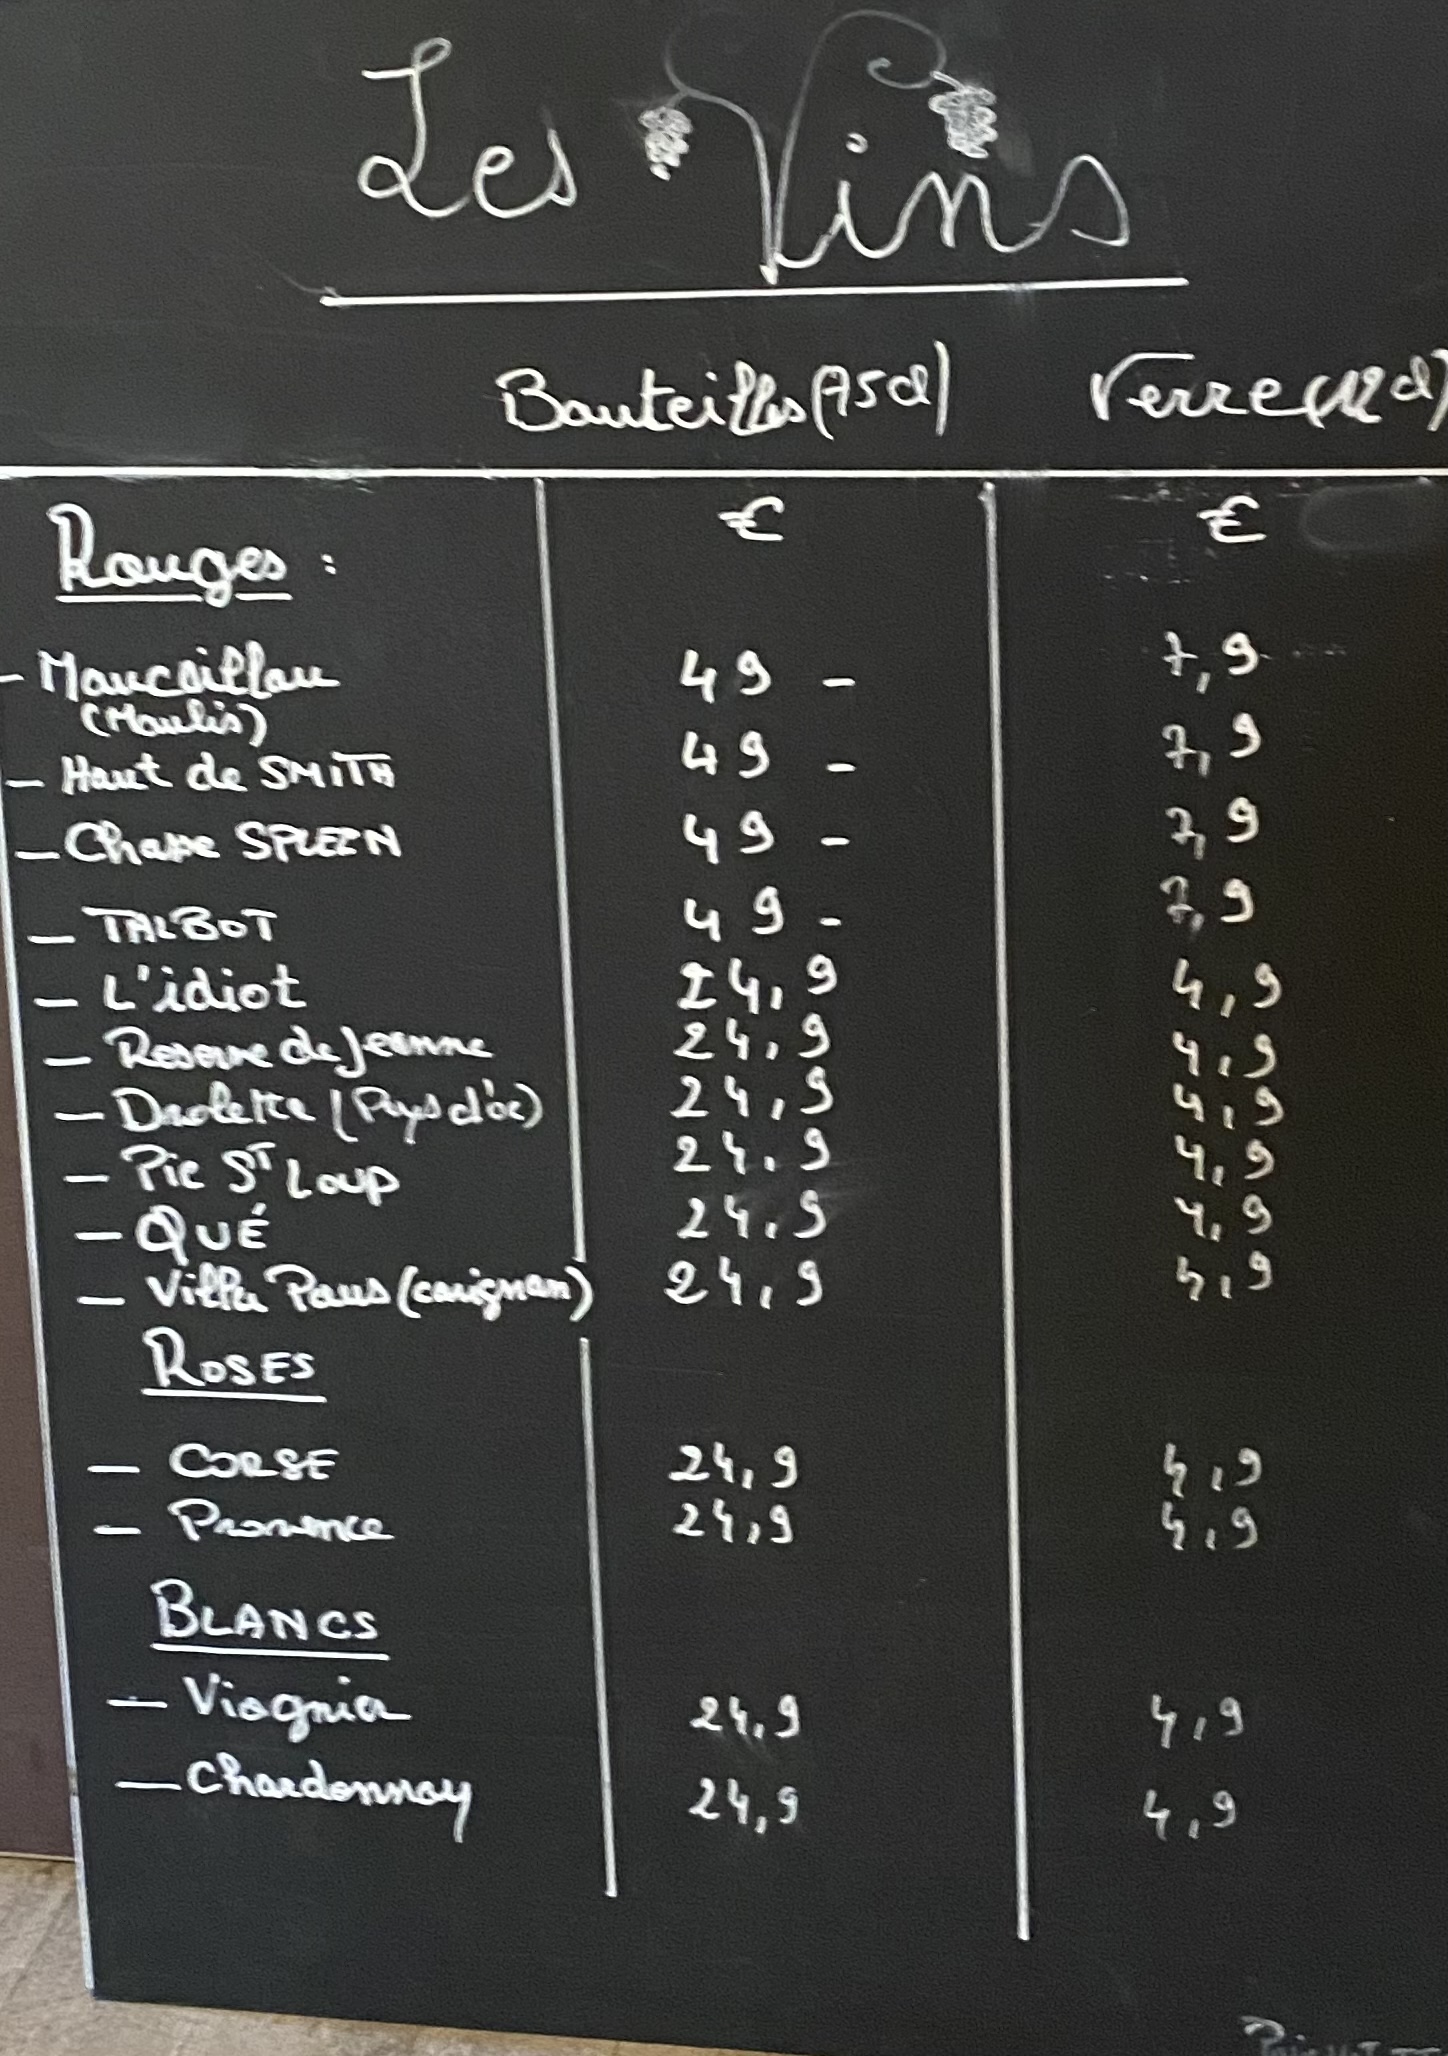 Les Vins
Bouteilles (75cl) Verre (12cl)
€ €
Rouges :
- Maucaillou 49 - 7,9
(Moulis)
- Haut de SMITH 49 - 7,9
- Chasse SPLEEN 49 - 7,9
- TALBOT 49 - 7,9
- L'idiot 24,9 4,9
- Reserve de Jeanne 24,9 4,9
- Drolette (Pays d'oc) 24,9 4,9
- Pic ST Loup 24,9 4,9
- QUÉ 24,9 4,9
- Villa Paus (carignan) 24,9 4,9
ROSES
- CORSE 24,9 4,9
- Provence 24,9 4,9
BLANCS
- Viognier 24,9 4,9
- Chardonnay 24,9 4,9